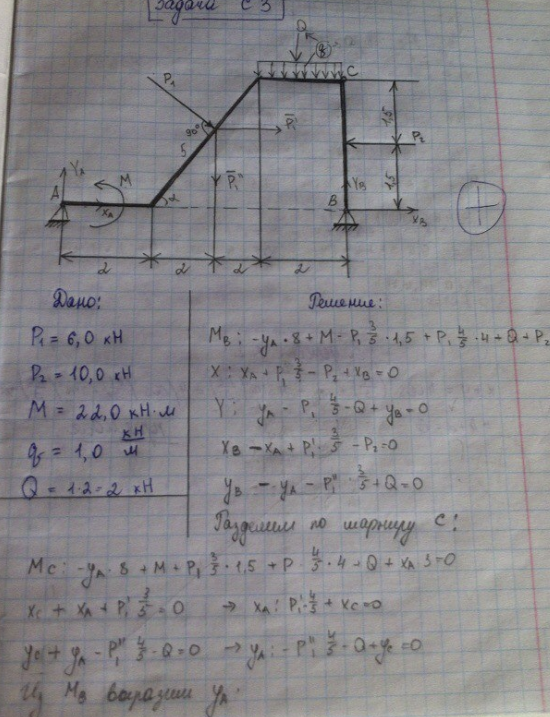 Задача С 3
Q
q
C
P₁
90°
5
P̄₁'
P̄₁"
1,5
P₂
1,5
Y_A
M
A
X_A
α
Y_B
B
X_B
2 2 2 2
Дано:
P₁ = 6,0 кН
P₂ = 10,0 кН
M = 22,0 кН·м
q = 1,0 кН/м
Q = 1·2 = 2 кН
Решение:
M_B: -y_A·8 + M - P₁ 3/5 ·1,5 + P₁ 4/5 ·4 + Q + P₂
X: x_A + P₁ 3/5 - P₂ + x_B = 0
Y: y_A - P₁ 4/5 - Q + y_B = 0
x_B - x_A + P₁' · 3/5 - P₂ = 0
y_B - y_A - P₁" · 3/5 + Q = 0
Разделим по шарниру С:
M_C: -y_A·8 + M + P₁ 3/5 ·1,5 + P · 4/5 ·4 + Q + x_A 3 = 0
x_C + x_A + P₁' 3/5 = 0 → x_A: P₁' · 4/5 + x_C = 0
y_C + y_A - P₁" 4/5 - Q = 0 → y_A: - P₁" 4/5 - Q + y_C = 0
Из M_B выразим y_A: